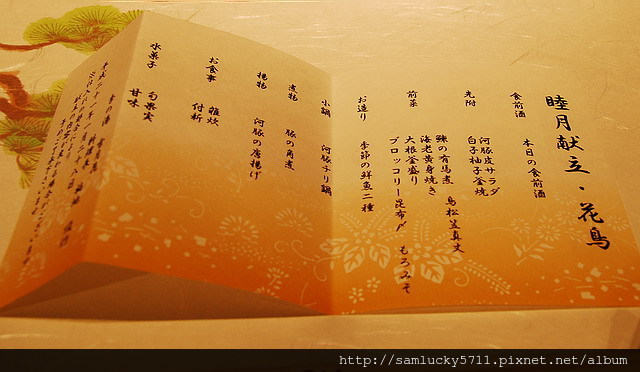 睦月献立・花鳥
食前酒
本日の食前酒
先附
河豚皮サラダ
白子柚子釜焼
前菜
鰊の有馬煮 鳥松笠真丈
海老黄身焼き
大根釜盛り
ブロッコリー昆布〆 もろみそ
お造り
季節の鮮魚二種
小鍋
河豚チリ鍋
煮物
豚の角煮
揚物
河豚の唐揚げ
お食事
雑炊
付新
水菓子
旬果実
甘味
http://samlucky5711.pixnet.net/album